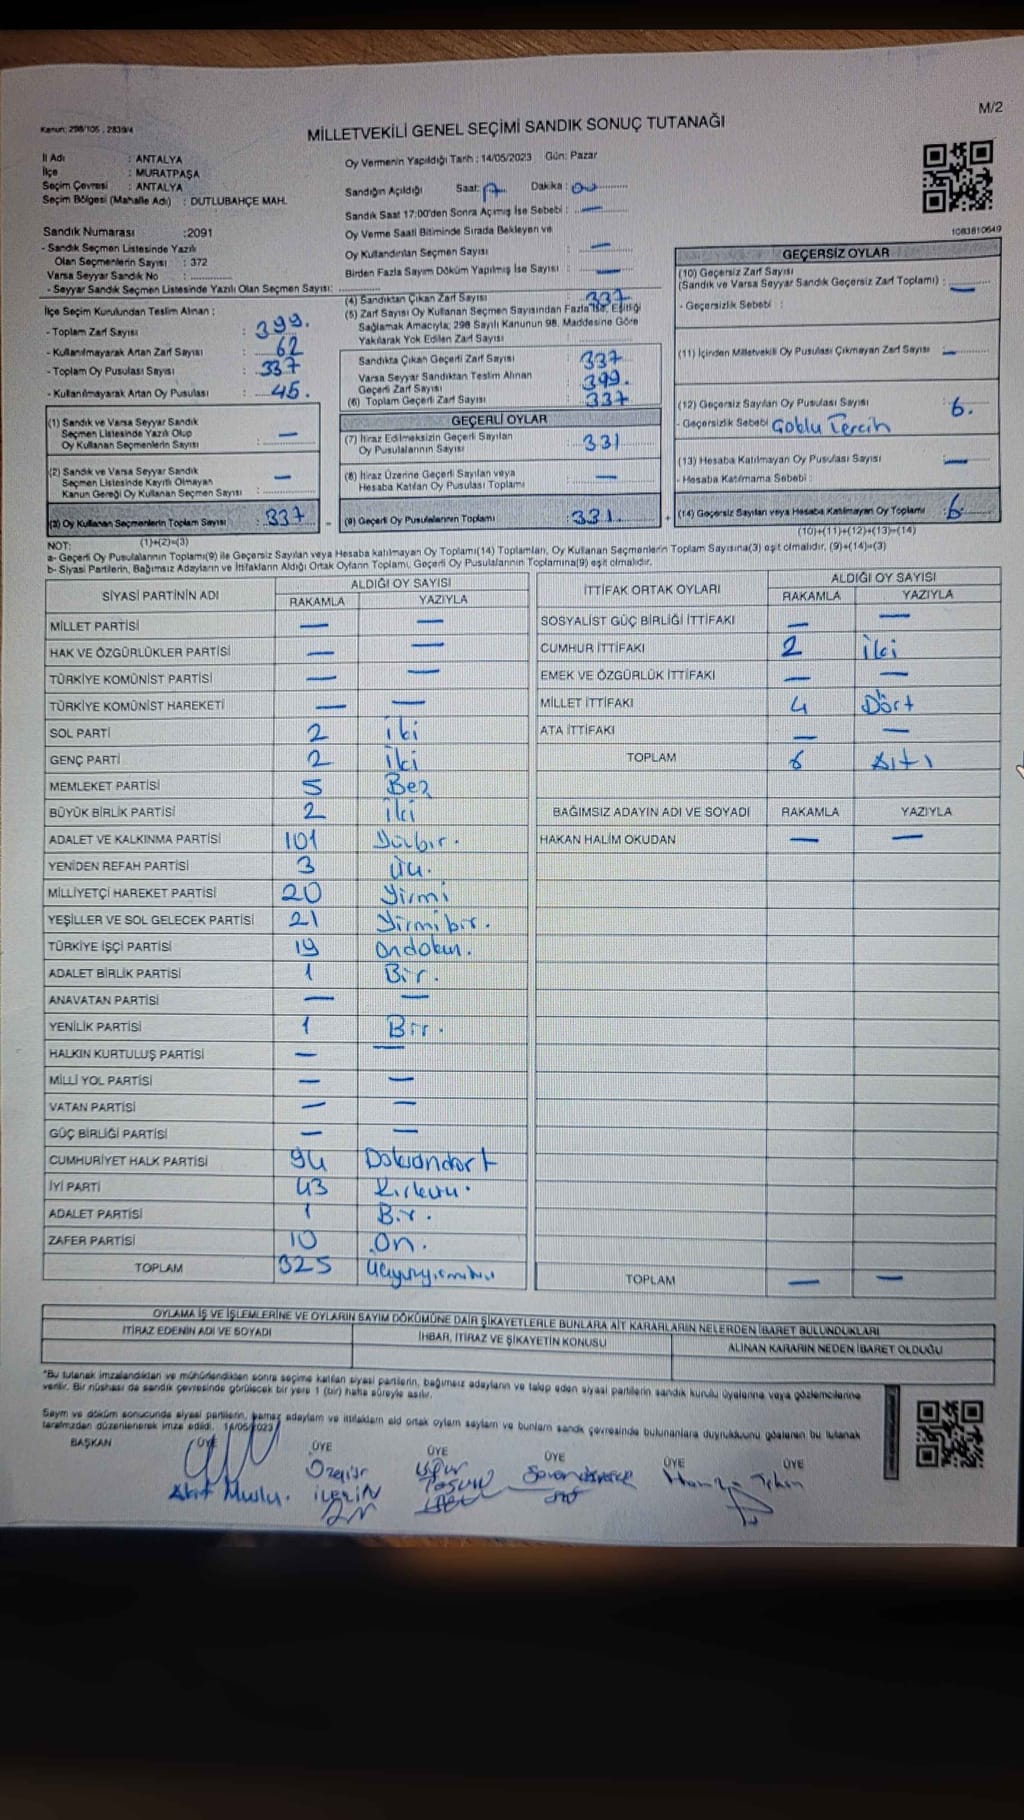 M/2
Kanun: 298/105 , 2839/4
MİLLETVEKİLİ GENEL SEÇİMİ SANDIK SONUÇ TUTANAĞI
İl Adı : ANTALYA
İlçe : MURATPAŞA
Seçim Çevresi : ANTALYA
Seçim Bölgesi (Mahalle Adı) : DUTLUBAHÇE MAH.
Oy Vermenin Yapıldığı Tarih : 14/05/2023 Gün: Pazar
Sandığın Açıldığı Saat: Dakika :
Sandık Saat 17:00'den Sonra Açmış İse Sebebi : —
Oy Verme Saati Bitiminde Sırada Bekleyen ve
Oy Kullandırılan Seçmen Sayısı —
Birden Fazla Sayım Döküm Yapılmış İse Sayısı —
1083810649
Sandık Numarası :2091
- Sandık Seçmen Listesinde Yazılı
Olan Seçmenlerin Sayısı : 372
Varsa Seyyar Sandık No :
- Seyyar Sandık Seçmen Listesinde Yazılı Olan Seçmen Sayısı:
İlçe Seçim Kurulundan Teslim Alınan :
- Toplam Zarf Sayısı : 399.
- Kullanılmayarak Artan Zarf Sayısı : 62
- Toplam Oy Pusulası Sayısı : 337
- Kullanılmayarak Artan Oy Pusulası : 45.
(1) Sandık ve Varsa Seyyar Sandık
Seçmen Listesinde Yazılı Olup
Oy Kullanan Seçmenlerin Sayısı : —
(2) Sandık ve Varsa Seyyar Sandık
Seçmen Listesinde Kayıtlı Olmayan
Kanun Gereği Oy Kullanan Seçmen Sayısı : —
(3) Oy Kullanan Seçmenlerin Toplam Sayısı : 337
(1)+(2)=(3)
(4) Sandıktan Çıkan Zarf Sayısı : 337
(5) Zarf Sayısı Oy Kullanan Seçmen Sayısından Fazla İse, Eşitliği
Sağlamak Amacıyla; 298 Sayılı Kanunun 98. Maddesine Göre
Yakılarak Yok Edilen Zarf Sayısı :
Sandıkta Çıkan Geçerli Zarf Sayısı : 337
Varsa Seyyar Sandıktan Teslim Alınan
Geçerli Zarf Sayısı : 399.
(6) Toplam Geçerli Zarf Sayısı : 337
GEÇERLİ OYLAR
(7) İtiraz Edilmeksizin Geçerli Sayılan
Oy Pusulalarının Sayısı : 331
(8) İtiraz Üzerine Geçerli Sayılan veya
Hesaba Katılan Oy Pusulası Toplamı : —
(9) Geçerli Oy Pusulalarının Toplamı : 331
GEÇERSİZ OYLAR
(10) Geçersiz Zarf Sayısı
(Sandık ve Varsa Seyyar Sandık Geçersiz Zarf Toplamı) : —
- Geçersizlik Sebebi :
(11) İçinden Milletvekili Oy Pusulası Çıkmayan Zarf Sayısı : —
(12) Geçersiz Sayılan Oy Pusulası Sayısı : 6.
- Geçersizlik Sebebi Goblu Tercih
(13) Hesaba Katılmayan Oy Pusulası Sayısı : —
- Hesaba Katılmama Sebebi :
(14) Geçersiz Sayılan veya Hesaba Katılmayan Oy Toplamı : 6
(10)+(11)+(12)+(13)=(14)
NOT:
a- Geçerli Oy Pusulalarının Toplamı(9) ile Geçersiz Sayılan veya Hesaba katılmayan Oy Toplamı(14) Toplamları, Oy Kullanan Seçmenlerin Toplam Sayısına(3) eşit olmalıdır, (9)+(14)=(3)
b- Siyasi Partilerin, Bağımsız Adayların ve İttifakların Aldığı Ortak Oyların Toplamı, Geçerli Oy Pusulalarının Toplamına(9) eşit olmalıdır.
SİYASİ PARTİNİN ADI ALDIĞI OY SAYISI
RAKAMLA YAZIYLA
MİLLET PARTİSİ — —
HAK VE ÖZGÜRLÜKLER PARTİSİ — —
TÜRKİYE KOMÜNİST PARTİSİ — —
TÜRKİYE KOMÜNİST HAREKETİ — —
SOL PARTİ 2 iki
GENÇ PARTİ 2 iki
MEMLEKET PARTİSİ 5 Beş
BÜYÜK BİRLİK PARTİSİ 2 iki
ADALET VE KALKINMA PARTİSİ 101 Yüzbir.
YENİDEN REFAH PARTİSİ 3 üç.
MİLLİYETÇİ HAREKET PARTİSİ 20 Yirmi
YEŞİLLER VE SOL GELECEK PARTİSİ 21 Yirmibir.
TÜRKİYE İŞÇİ PARTİSİ 19 ondokuz.
ADALET BİRLİK PARTİSİ 1 Bir.
ANAVATAN PARTİSİ — —
YENİLİK PARTİSİ 1 Bir.
HALKIN KURTULUŞ PARTİSİ — —
MİLLİ YOL PARTİSİ — —
VATAN PARTİSİ — —
GÜÇ BİRLİĞİ PARTİSİ — —
CUMHURİYET HALK PARTİSİ 94 Doksandört
İYİ PARTİ 43 Kırküç.
ADALET PARTİSİ 1 Bir.
ZAFER PARTİSİ 10 on.
TOPLAM 325
İTTİFAK ORTAK OYLARI ALDIĞI OY SAYISI
RAKAMLA YAZIYLA
SOSYALİST GÜÇ BİRLİĞİ İTTİFAKI — —
CUMHUR İTTİFAKI 2 iki
EMEK VE ÖZGÜRLÜK İTTİFAKI — —
MİLLET İTTİFAKI 4 Dört
ATA İTTİFAKI — —
TOPLAM 6 Altı
BAĞIMSIZ ADAYIN ADI VE SOYADI RAKAMLA YAZIYLA
HAKAN HALİM OKUDAN — —
TOPLAM — —
OYLAMA İŞ VE İŞLEMLERİNE VE OYLARIN SAYIM DÖKÜMÜNE DAİR ŞİKAYETLERLE BUNLARA AİT KARARLARIN NELERDEN İBARET BULUNDUKLARI
İTİRAZ EDENİN ADI VE SOYADI İHBAR, İTİRAZ VE ŞİKAYETİN KONUSU ALINAN KARARIN NEDEN İBARET OLDUĞU
"Bu tutanak imzalandıktan ve mühürlendikten sonra seçime katılan siyasi partilerin, bağımsız adayların ve talep eden siyasi partilerin sandık kurulu üyelerine veya gözlemcilerine
verilir. Bir nüshası da sandık çevresinde görülecek bir yere 1 (bir) hafta süreyle asılır.
Sayım ve döküm sonucunda siyasi partilerin, adayların ve ittifakların ortak oyların sayılarını ve bunların sandık çevresinde bulunanlara duyrulduunu gösteren bu tutanak
tarafımızdan düzenlenerek imza edildi. 14/05/2023
BAŞKAN ÜYE ÜYE ÜYE ÜYE ÜYE ÜYE
Akif Mutlu. Özgür Uğur Hamza Tekin